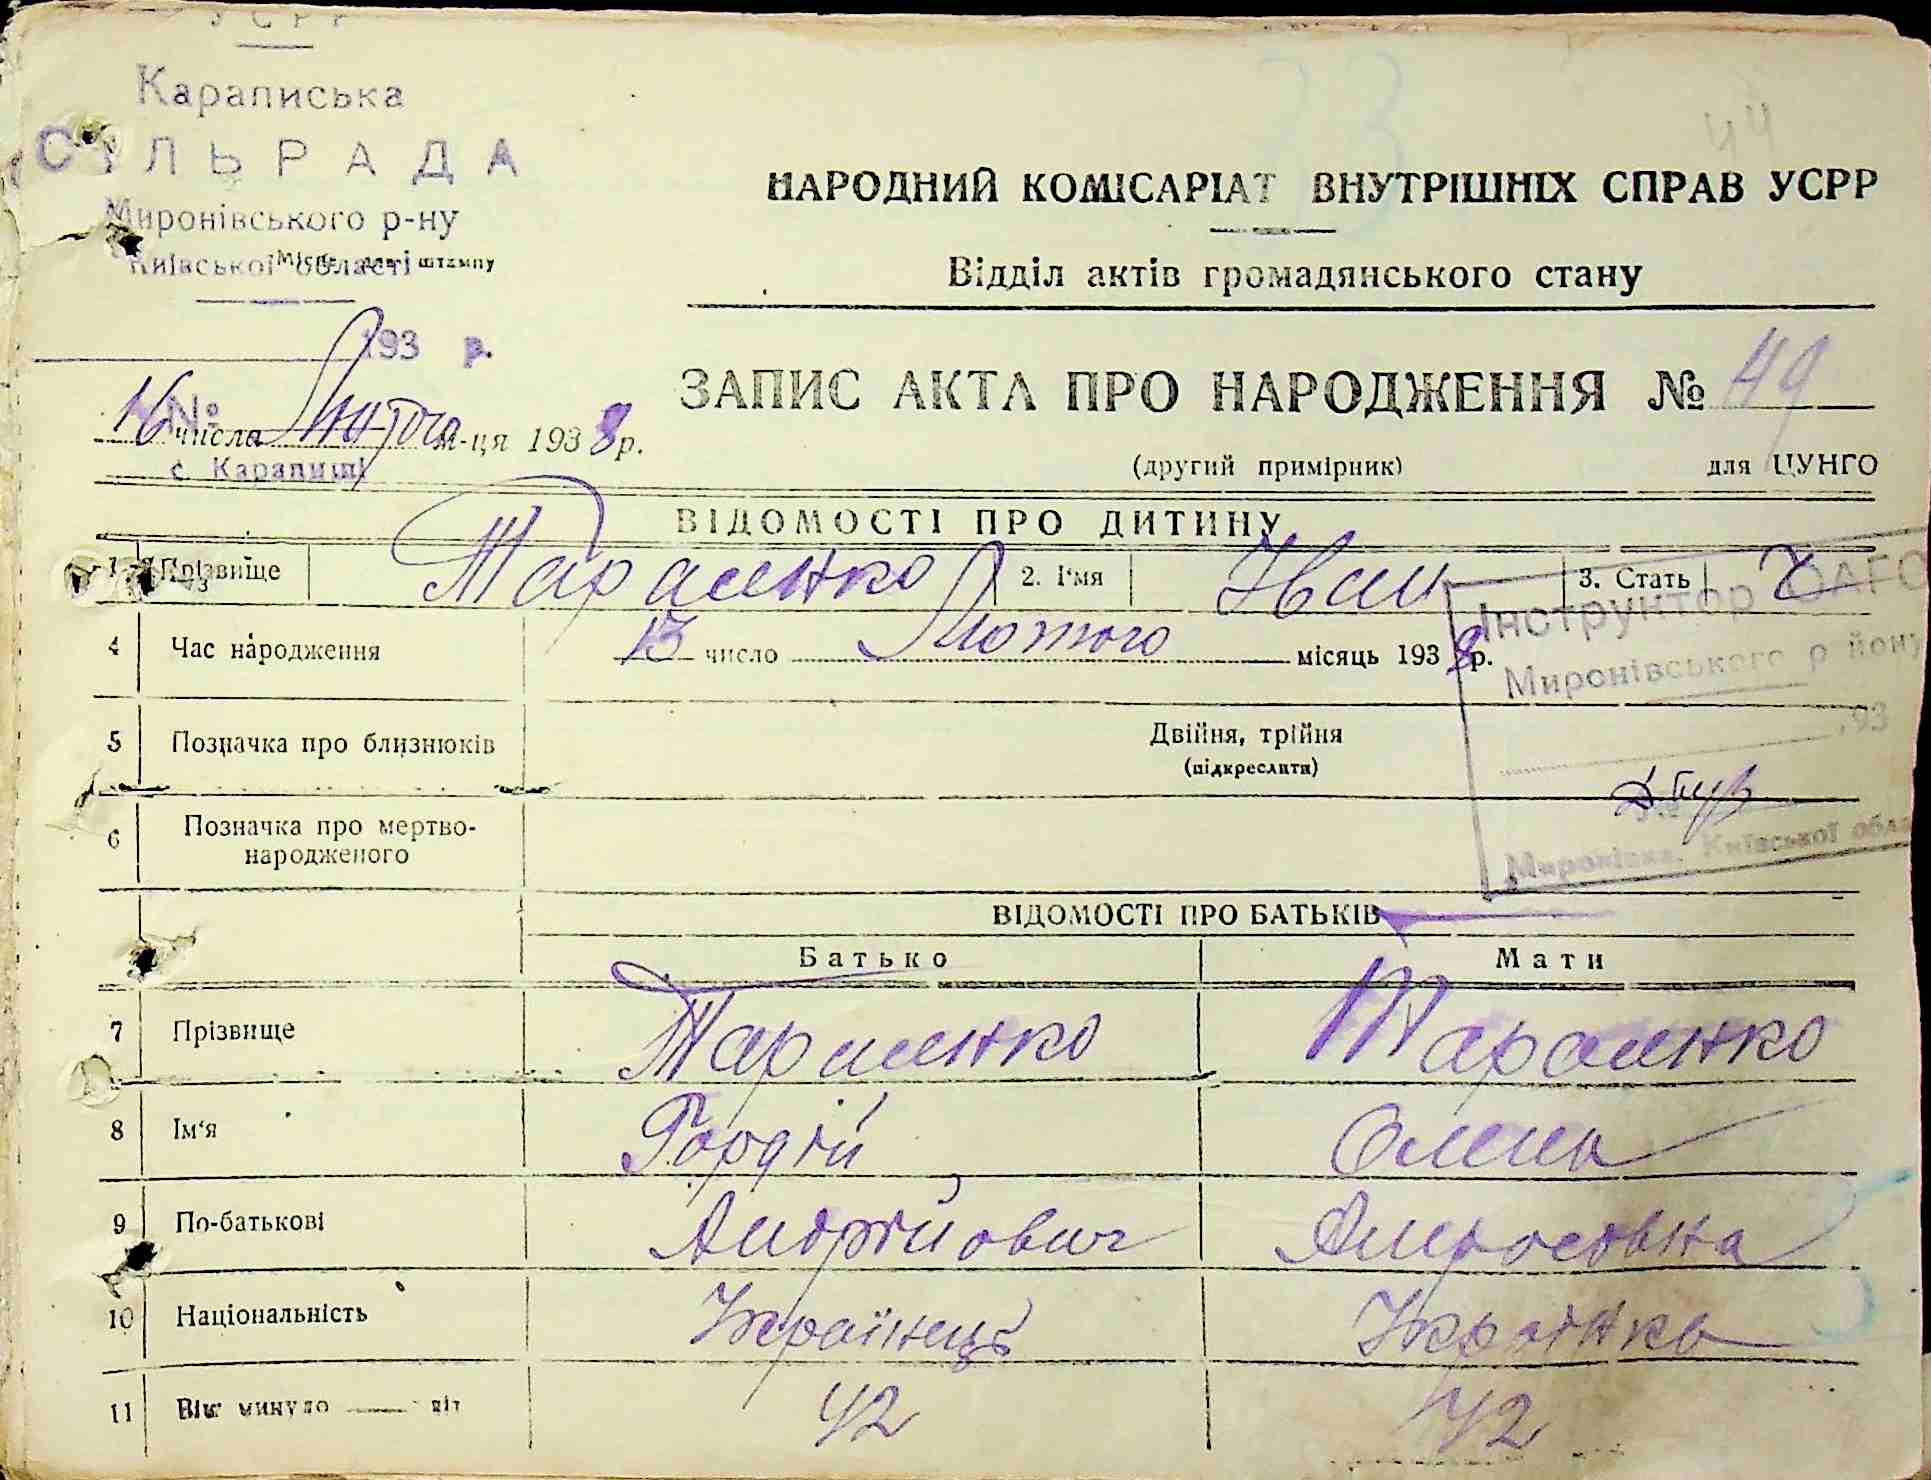 УСРР
Караписька
СІЛЬРАДА
Миронівського р-ну
Київської області
Місце для штампу
193 р.
№
с. Карапиші
16 числа Лютого м-ця 1938 р.
44
НАРОДНИЙ КОМІСАРІАТ ВНУТРІШНІХ СПРАВ УСРР
Відділ актів громадянського стану
ЗАПИС АКТА ПРО НАРОДЖЕННЯ № 49
(другий примірник) для ЦУНГО
ВІДОМОСТІ ПРО ДИТИНУ
1 Прізвище Тараненко 2. І'мя Иван 3. Стать Ч
4 Час народження 13 число Лютого місяць 1938 р.
Інструктор ОАГС
Миронівського району
193
5 Позначка про близнюків Двійня, трійня
(підкреслити)
6 Позначка про мертво-
народженого
Миронівка, Київської обла
ВІДОМОСТІ ПРО БАТЬКІВ
Батько Мати
7 Прізвище Тараненко Тараненко
8 Ім'я Гордій Олена
9 По-батькові Андрійович
10 Національність Українець Українка
11 Вік минуло літ 42 42